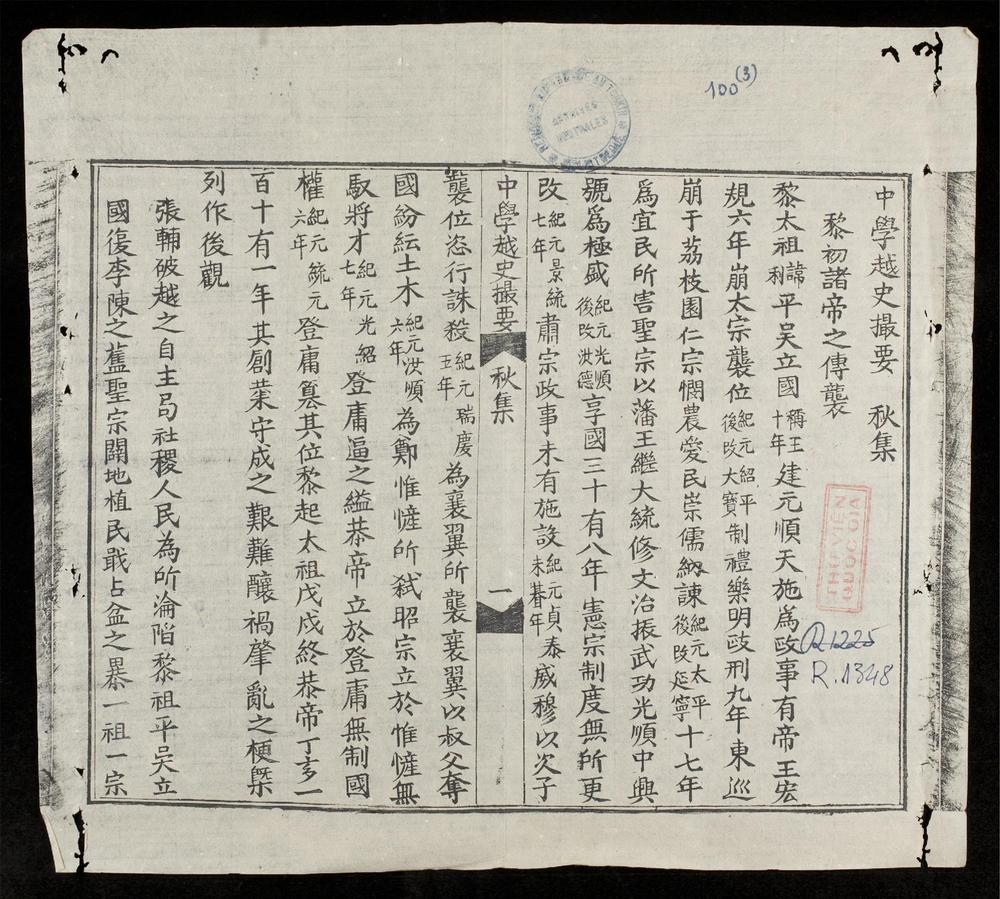 中學越史撮要 秋集
黎初諸帝之傳襲
黎太祖諱利平吳立國稱王十年建元順天施爲政事有帝王宏
規六年崩太宗襲位紀元紹平後改大寶制禮樂明政刑九年東巡
崩于荔枝園仁宗憫農愛民崇儒納諫紀元太平後改延寧十七年
爲宜民所害聖宗以藩王繼大統修文治振武功光順中興
號爲極盛紀元光順後改洪德享國三十有八年憲宗制度無所更
改紀元景統七年肅宗政事未有施設紀元貞泰未朞年威穆以次子
中學越史撮要 秋集 一
襲位恣行誅殺紀元瑞慶五年為襄翼所襲襄翼以叔父奪
國紛紜土木紀元洪順六年為鄭惟㦃所弒昭宗立於惟㦃無
馭將才紀元光紹七年登庸逼之縊恭帝立於登庸無制國
權紀元統元六年登庸篡其位黎起太祖戊戌終恭帝丁亥一
百十有一年其創業守成之艱難釀禍肇亂之梗槩
列作後觀
張輔破越之自主局社稷人民為所淪陷黎祖平吳立
國復李陳之舊聖宗闢地植民戰占盆之暴一祖一宗
100(3)
ARCHIVES CENTRALES
THƯ VIỆN
QUỐC GIA
R1225
R.1348